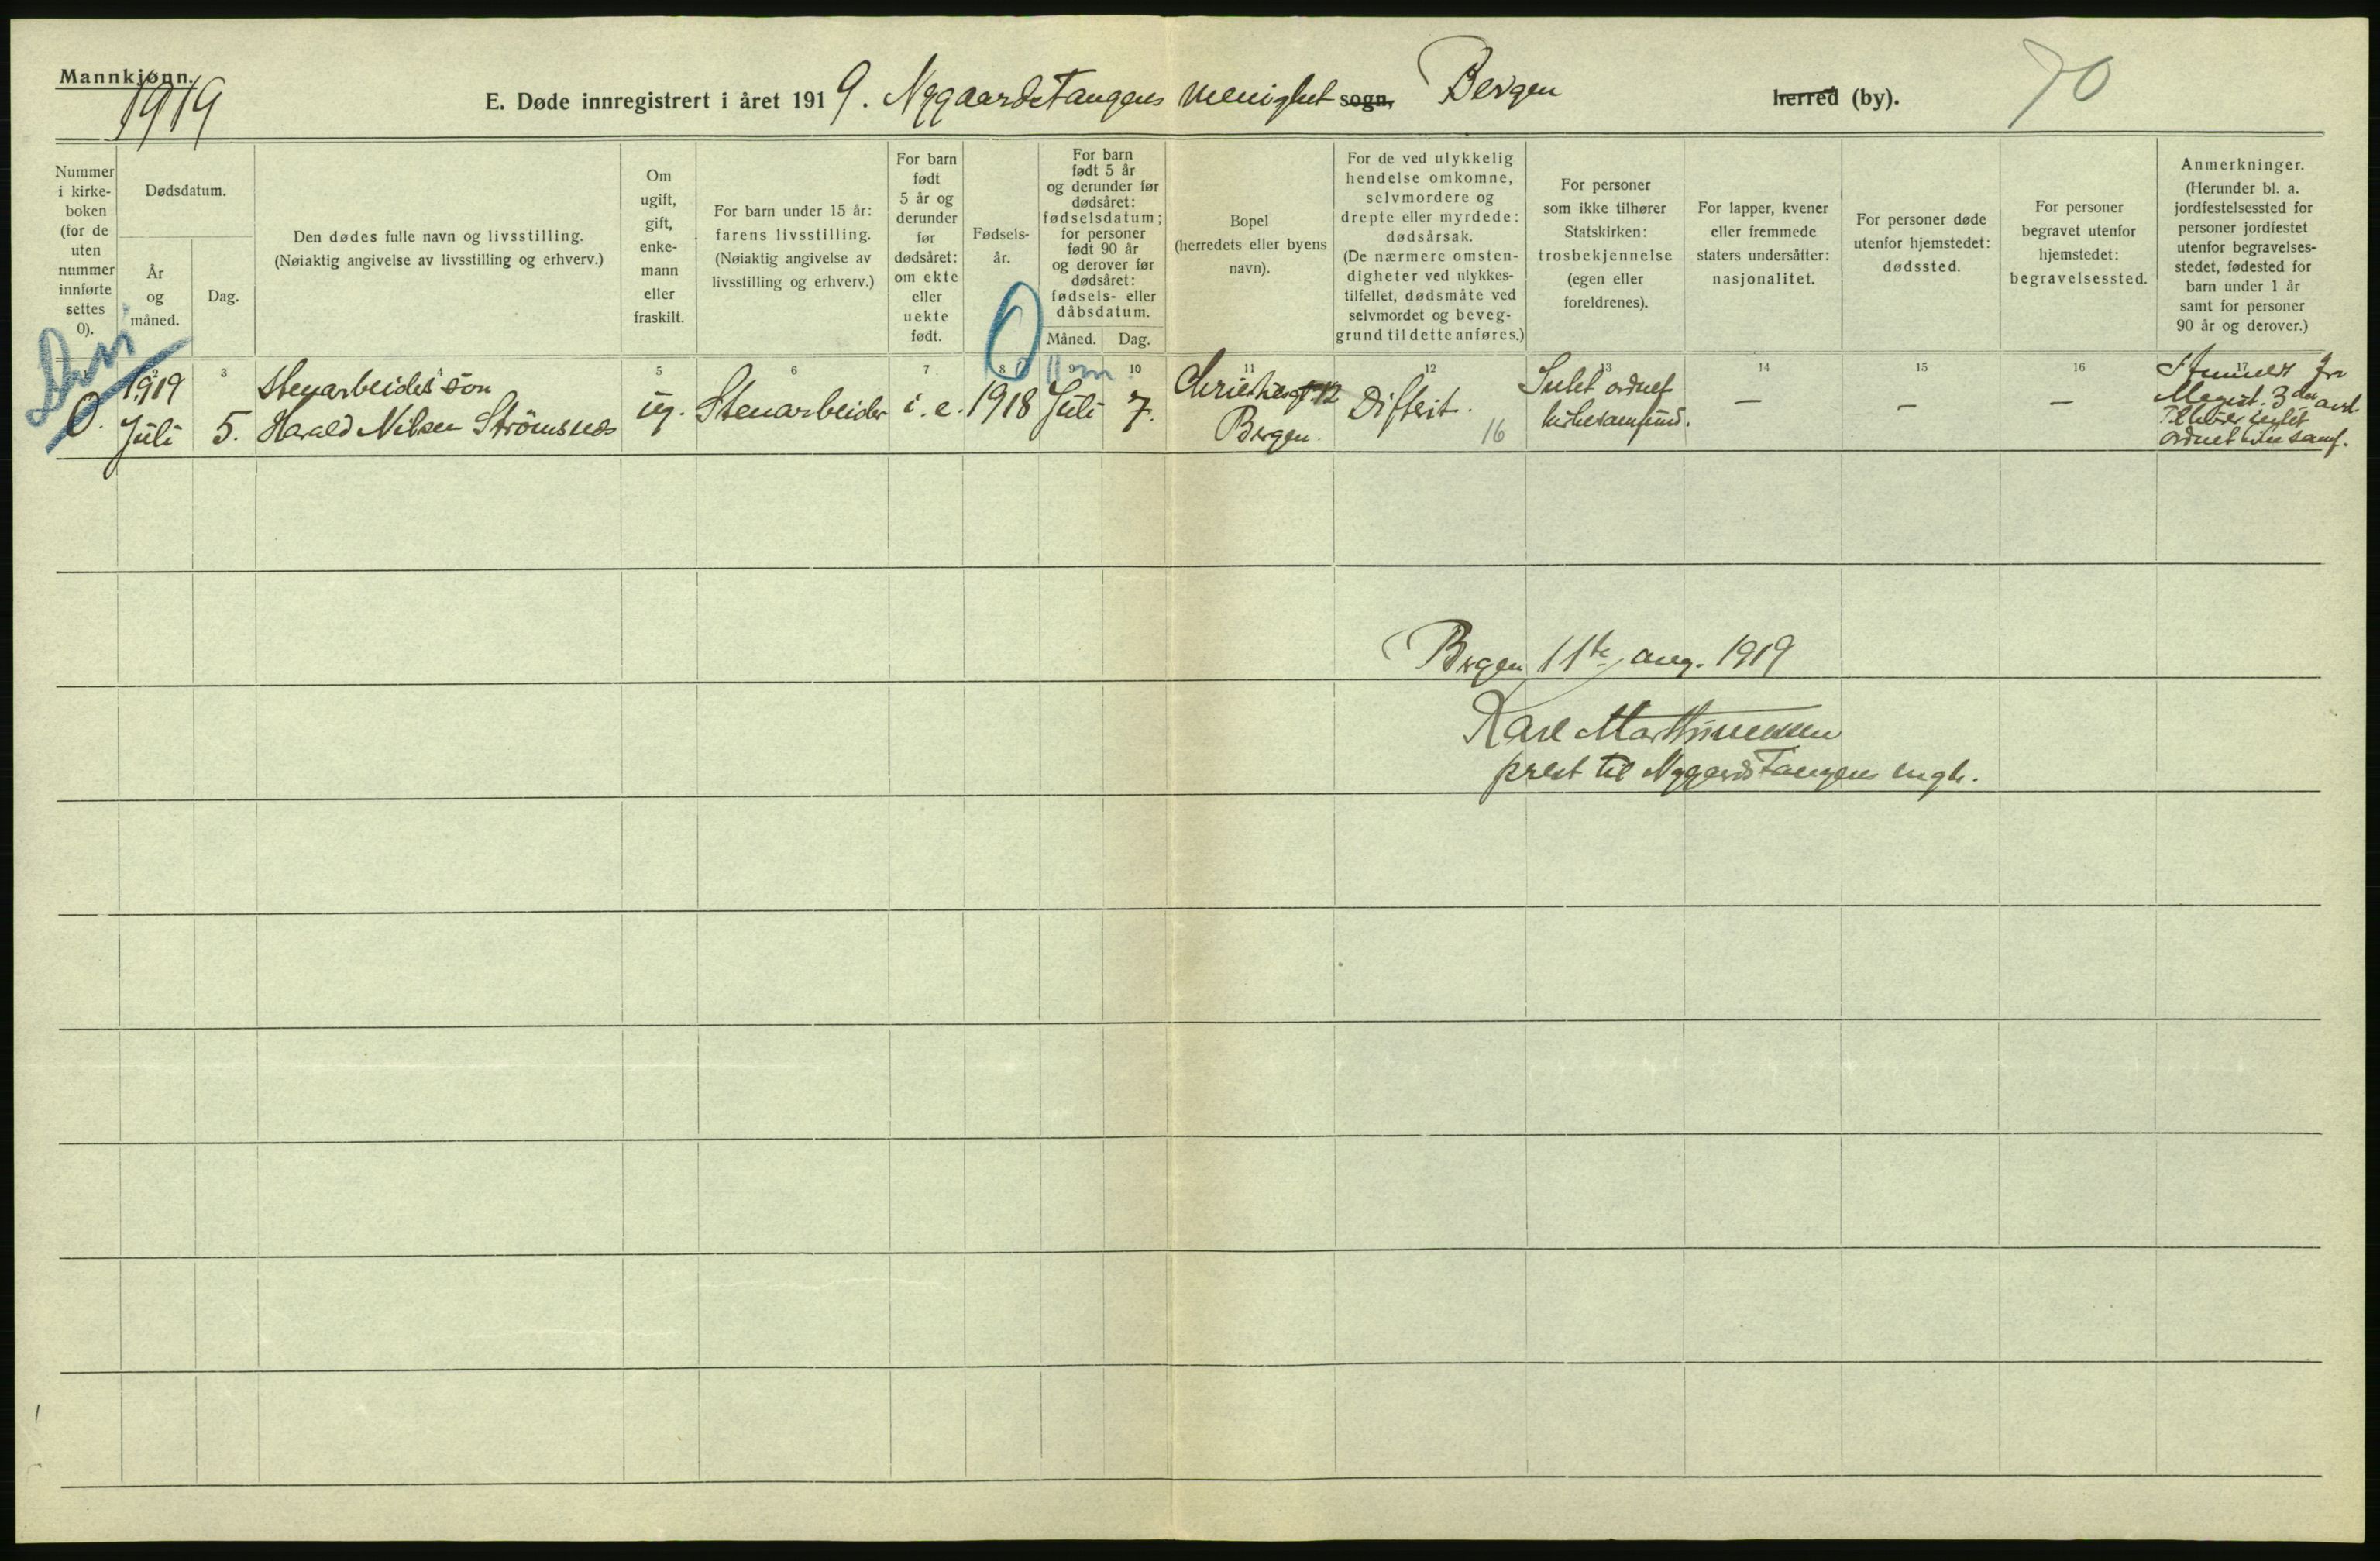 Mannkjønn.
1919
E. Døde innregistrert i året 1919. Nygaardstangens menighet sogn, Bergen herred (by).
70
Nummer i kirke-boken (for de uten nummer innførte settes 0).
Dødsdatum.
År og måned.
Dag.
Den dødes fulle navn og livsstilling.
(Nøiaktig angivelse av livsstilling og erhverv.)
Om ugift, gift, enke-mann eller fraskilt.
For barn under 15 år: farens livsstilling.
(Nøiaktig angivelse av livsstilling og erhverv.)
For barn født 5 år og derunder før dødsåret: om ekte eller uekte født.
Fødsels-år.
For barn født 5 år og derunder før dødsåret: fødselsdatum; for personer født 90 år og derover før dødsåret: fødsels- eller dåbsdatum.
Måned. Dag.
Bopel
(herredets eller byens navn).
For de ved ulykkelig hendelse omkomne, selvmordere og drepte eller myrdede: dødsårsak.
(De nærmere omsten-digheter ved ulykkes-tilfellet, dødsmåte ved selvmordet og beveg-grund til dette anføres.)
For personer som ikke tilhører Statskirken: trosbekjennelse (egen eller foreldrenes).
For lapper, kvener eller fremmede staters undersåtter: nasjonalitet.
For personer døde utenfor hjemstedet: dødssted.
For personer begravet utenfor hjemstedet: begravelsessted.
Anmerkninger.
(Herunder bl. a. jordfestelsessted for personer jordfestet utenfor begravelses-stedet, fødested for barn under 1 år samt for personer 90 år og derover.)
2 3 5 6 7 8 9 10 11 12 13 14 15 16 17
0
11 m
0.
1919
Juli
5.
Stenarbeiders søn
Harald Nilsen Strömsnes
ug.
Stenarbeider
i. e.
1918
Juli
7.
Christiesgt 12
Bergen.
Difterit.
16
Intet ordnet
kirkesamfund.
—
—
—
fra
Magist. 3die avd.
Tilhører intet
ordnet kirkesamf.
Bergen 11te aug. 1919
Karl Marthinussen
prest til Nygaardstangens mgh.